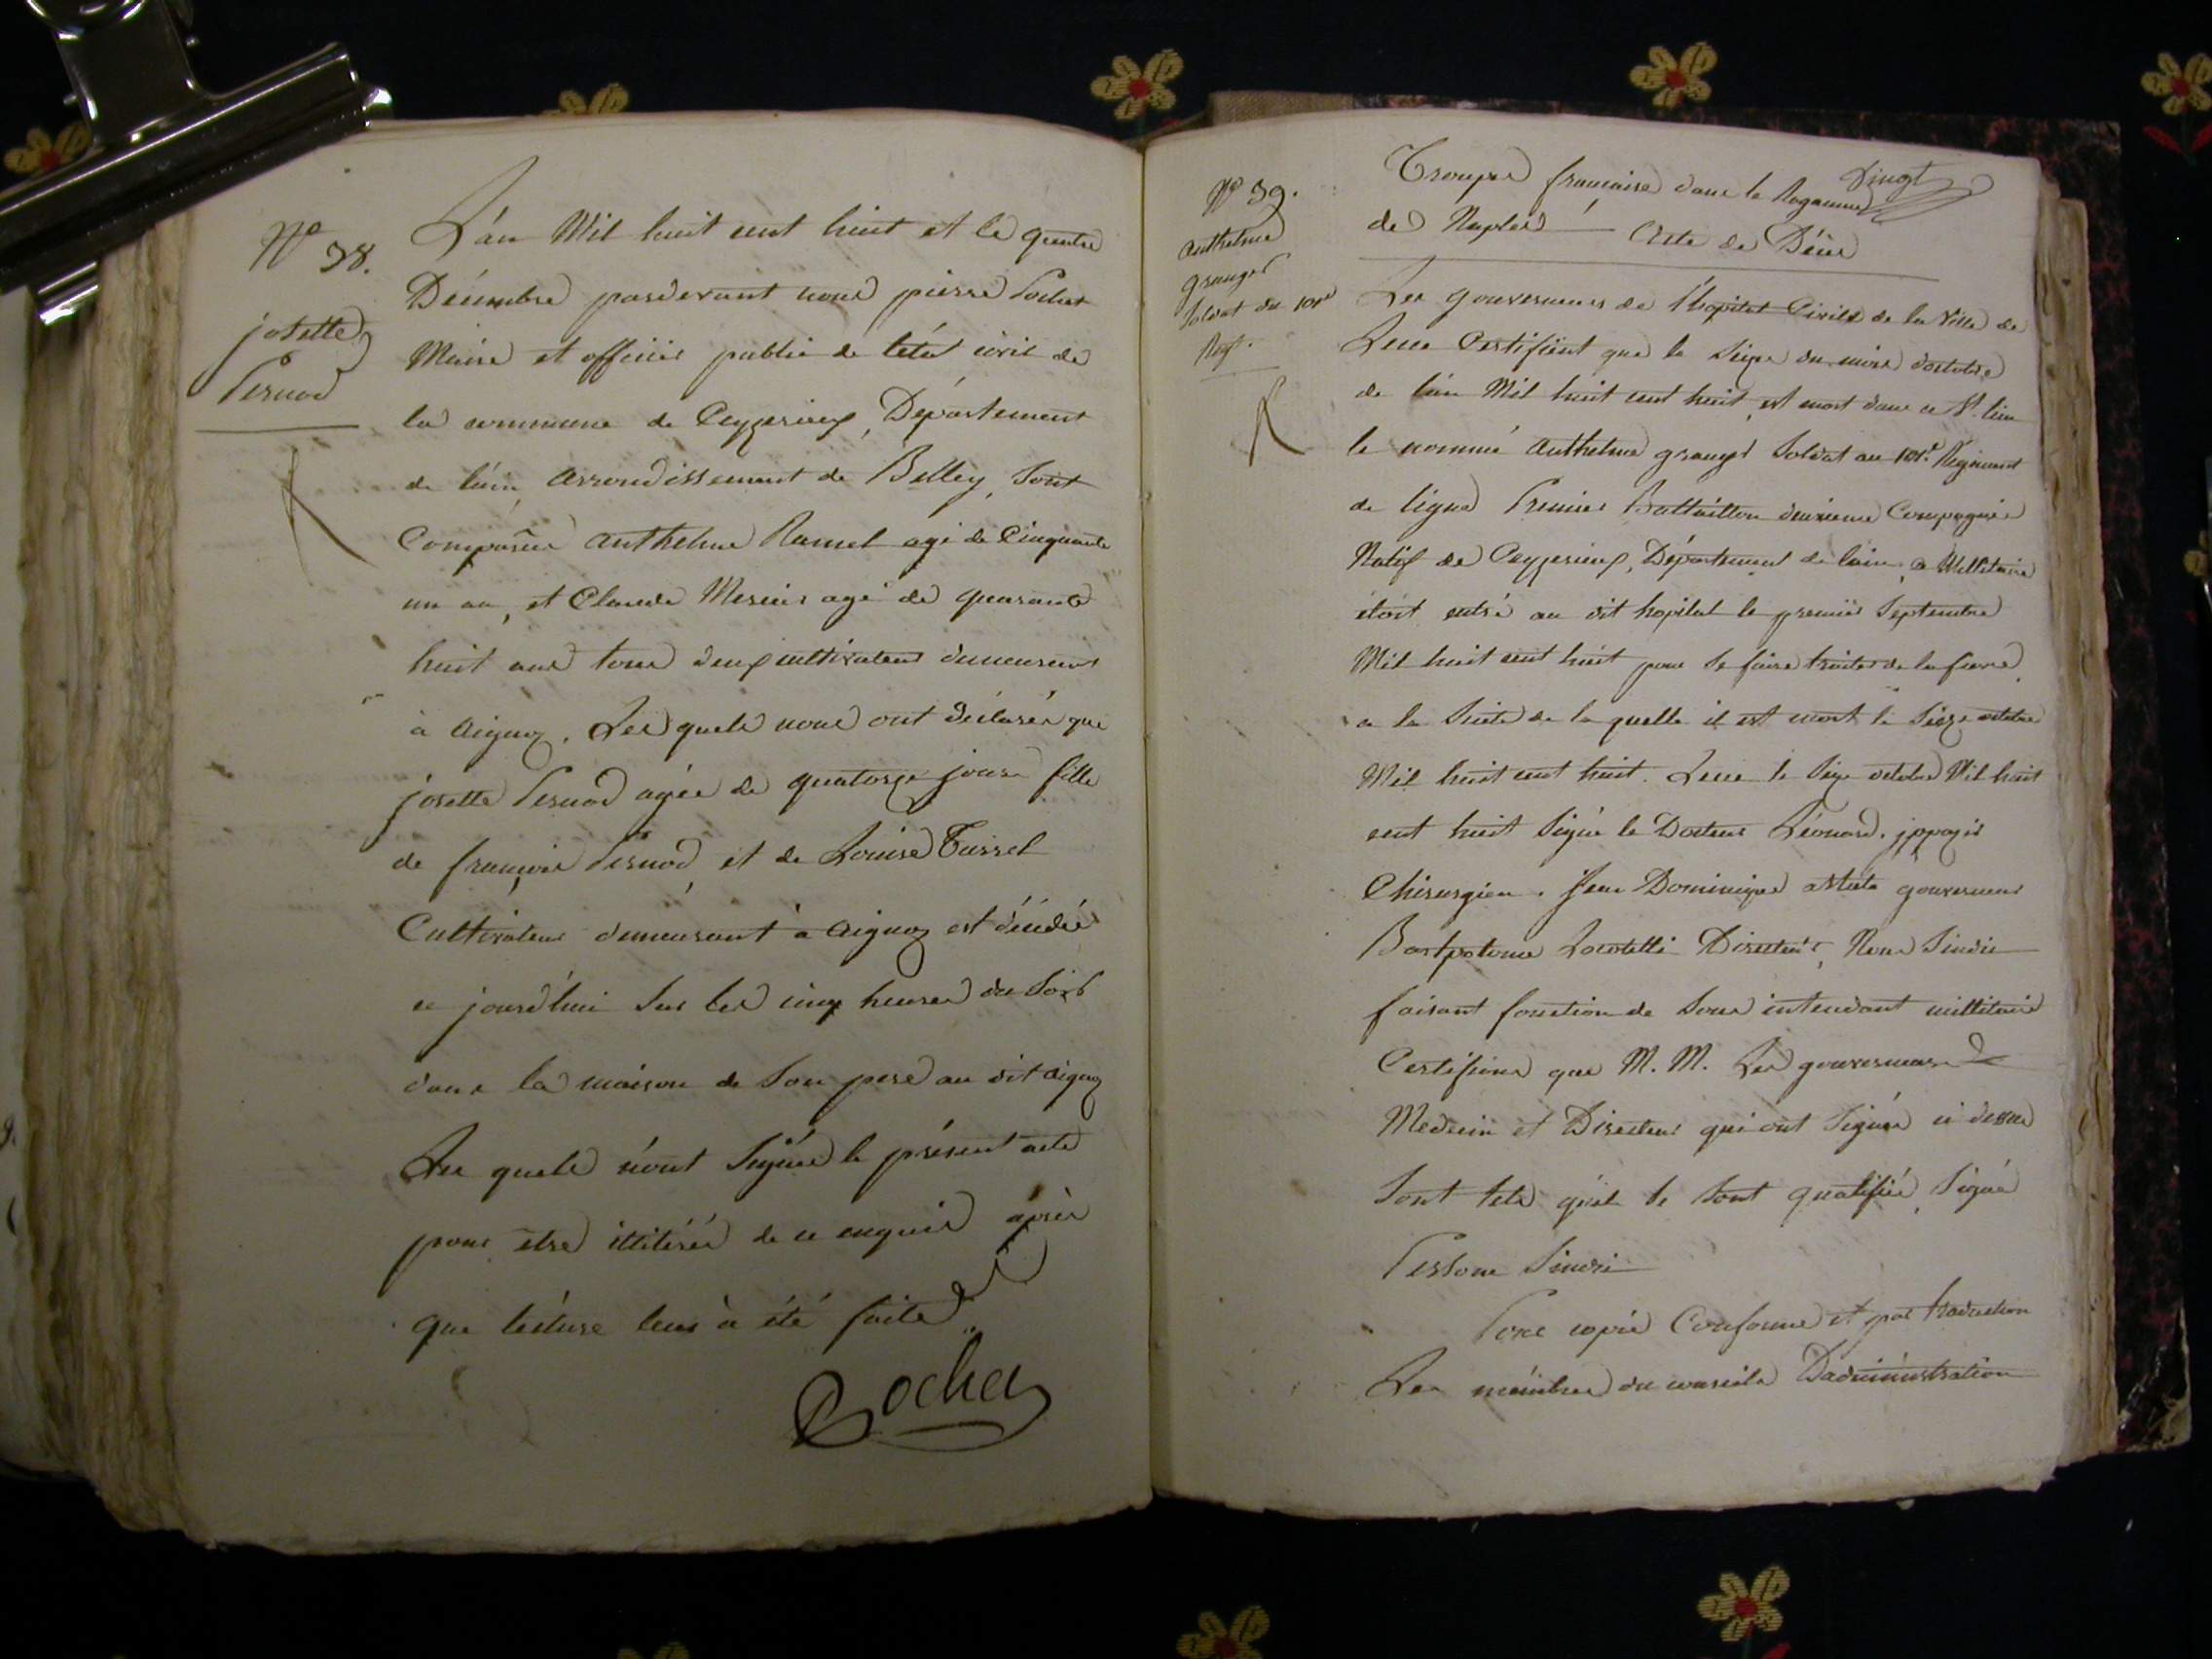 N° 38.
josette
Pernod
L'an Mil huit cent huit et le quatre
Décembre pardevant nous pierre Pochet
Maire et officier public de l'état civil de
la commune de Ceyzerieux, Département
de l'ain, arrondissement de Belley, Sont
Comparus anthelme Ramel agé de Cinquante
un an, et Claude Mercier agé de quarante
huit ans tous deux cultivateurs demeurant
à aignoz. Lesquels nous ont déclarés que
josette Pernod agée de quatorze jours fille
de françois Pernod, et de Louise Tissot
Cultivateur demeurant à aignoz est décédée
ce jourd'hui sur les cinq heures du Soir
dans la maison de Son pere au dit aignoz
Les quels n'ont Signés le présent acte
pour être illiterés de ce enquis après
que lecture leur à été faite
Pochet
N° 39.
anthelme
granger
Soldat du 101e
Regt.
Vingt
Troupes françaises dans le Royaume
de Naples Acte de Décès
Les gouverneurs de l'hopital Civils de la Ville de
Certifient que le Seize du mois doctobre
de l'an Mil huit cent huit, est mort dans ce St. lieu
le nommé anthelme granger Soldat au 101e Régiment
de ligne Premier Battaillon deuxieme Compagnie
Natif de Ceyzerieux, Département de lain, Millitaire
étoit entré au dit hopital le premier Septembre
Mil huit cent huit pour se faire traiter de la fievre
a la Suite de la quelle il est mort le Seize octobre
Mil huit cent huit. le Seize octobre Mil huit
cent huit Signé le Docteur Léonard.
Chirurgien. Jean Dominique gouverneur
Locatelli Directeur, Nous Sindic
faisant fonction de Sous intendant millitaire
Certifions que M. M. Les gouverneurs
Medecin et Directeur qui ont Signés ci dessus
Sont tels qu'ils se Sont qualifiés, Signé
Sindic
Pour copie Conforme et par traduction
Les membres du conseils Dadministration